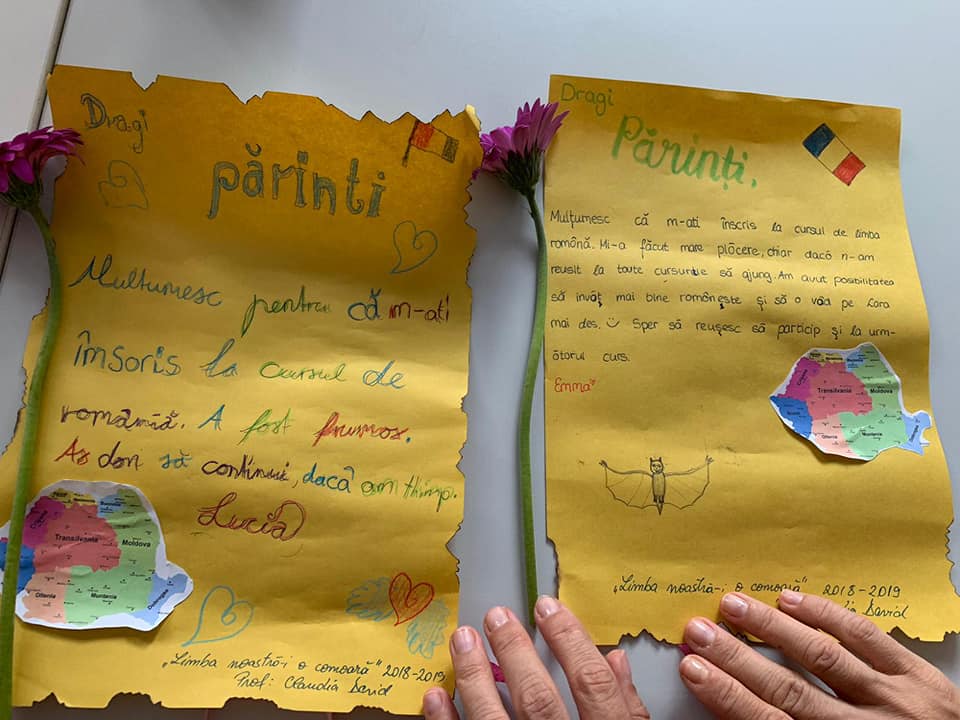 Dragi
părinti
Multumesc pentru că m-ati
însoris la cursul de
română. A fost frumos.
As dori să continui, dacă am timp.
Lucia
Transilvania
Moldova
Oltenia
Muntenia
Dobrogea
„Limba noastră-i o comoară" 2018-2019
Prof: Claudia David
Dragi
Părinți,
Mulțumesc că m-ati înscris la cursul de limba
română. Mi-a făcut mare plăcere, chiar dacă n-am
reusit la toate cursurile să ajung. Am avut posibilitatea
să învăț mai bine românește și să o văd pe Lara
mai des. Sper să reușesc să particip și la urm-
ătorul curs.
Emma
Transilvania
Moldova
Oltenia
Muntenia
„Limba noastră-i o comoară" 2018-2019
David